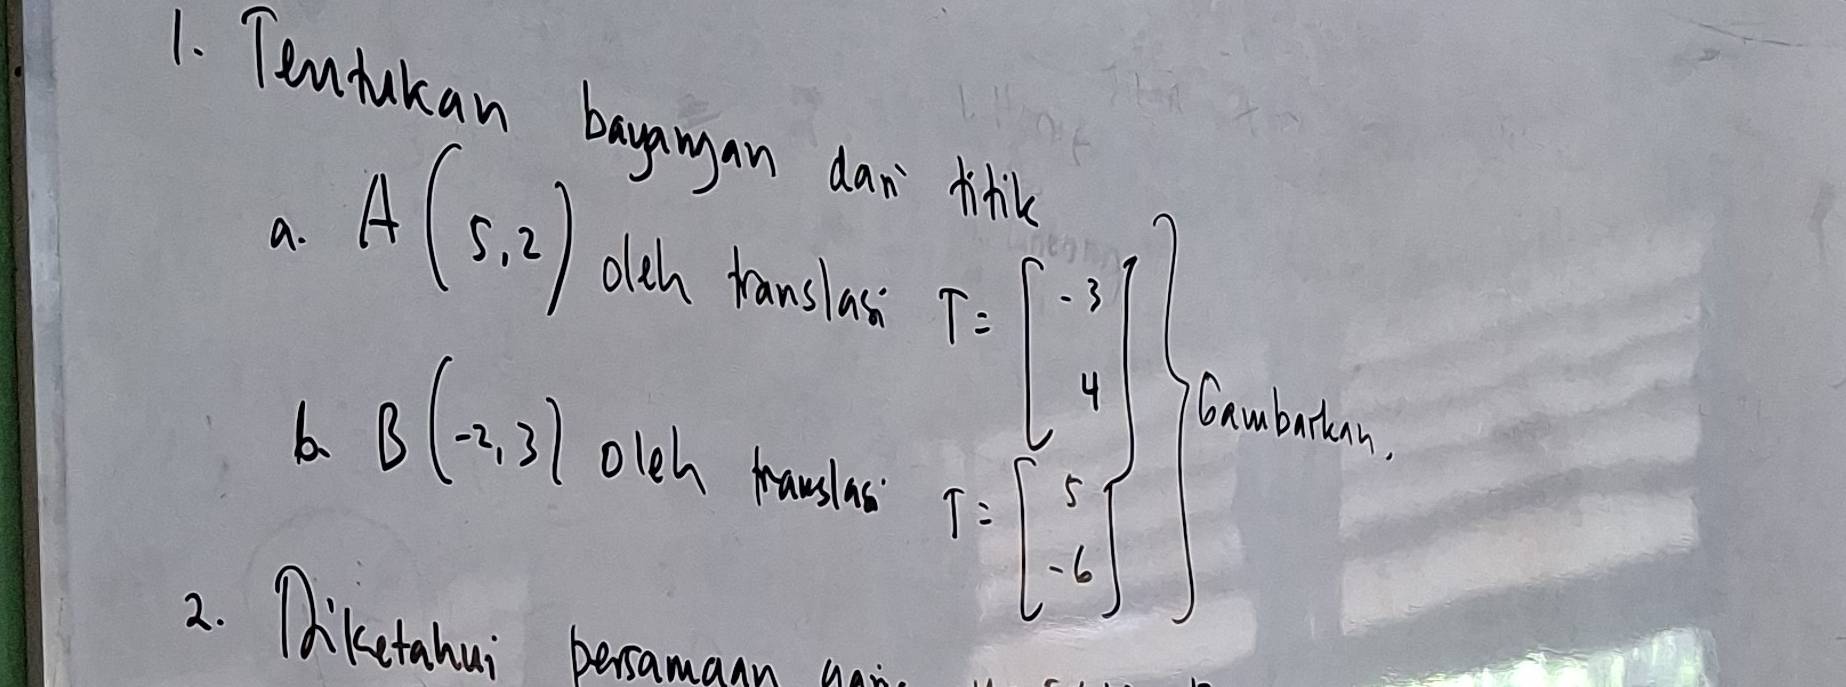 1. Tentukan bayangan dari titik
a. A (5,2) oleh translasi T = [-3 4]
b. B (-2,3) oleh translasi T = [5 -6]
} Gambarkan.
2. Diketahui persamaan